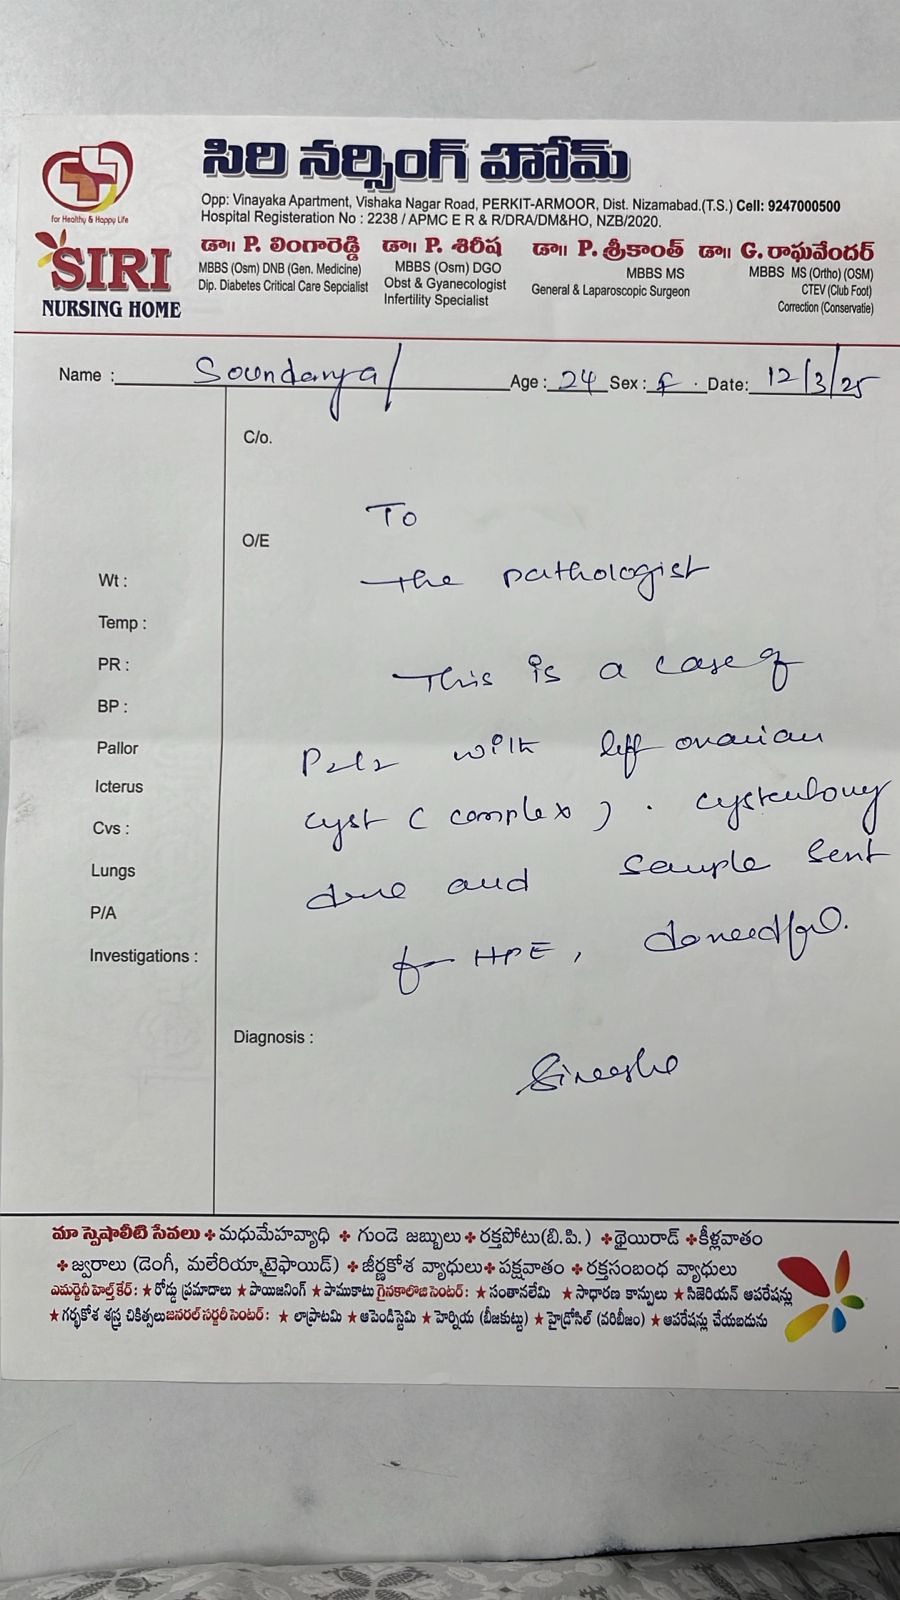 for Healthy & Happy Life
SIRI
NURSING HOME
సిరి నర్సింగ్ హోమ్
Opp: Vinayaka Apartment, Vishaka Nagar Road, PERKIT-ARMOOR, Dist. Nizamabad.(T.S.) Cell: 9247000500
Hospital Registeration No : 2238 / APMC E R & R/DRA/DM&HO, NZB/2020.
డా॥ P. లింగారెడ్డి
MBBS (Osm) DNB (Gen. Medicine)
Dip. Diabetes Critical Care Sepcialist
డా॥ P. శిరీష
MBBS (Osm) DGO
Obst & Gyanecologist
Infertility Specialist
డా॥ P. శ్రీకాంత్
MBBS MS
General & Laparoscopic Surgeon
డా॥ G. రాఘవేందర్
MBBS MS (Ortho) (OSM)
CTEV (Club Foot)
Correction (Conservatie)
Name : Soundarya Age : 24 Sex : f Date: 12/3/25
C/o.
O/E
Wt :
Temp :
PR :
BP :
Pallor
Icterus
Cvs :
Lungs
P/A
Investigations :
To
The pathologist
This is a case of
P2L2 with left ovarian
cyst ( complex ) . cystectomy
done and sample sent
for HPE, do needful.
Sireesha
Diagnosis :
మా స్పెషాలీటి సేవలు ✤ మధుమేహవ్యాధి ✤ గుండె జబ్బులు ✤ రక్తపోటు(బి.పి.) ✤ థైయిరాడ్ ✤ కీళ్లవాతం
✤ జ్వరాలు (డెంగీ, మలేరియా,టైఫాయిడ్) ✤ జీర్ణకోశ వ్యాధులు ✤ పక్షవాతం ✤ రక్తసంబంధ వ్యాధులు
ఎమర్జెనీ హెల్త్ కేర్: ★ రోడ్డు ప్రమాదాలు ★ పాయిజనింగ్ ★ పాముకాటు గైనకాలొజి సెంటర్: ★ సంతానలేమి ★ సాధారణ కాన్పులు ★ సిజెరియన్ ఆపరేషన్లు
★ గర్భకోశ శస్త్ర చికిత్సలు జనరల్ సర్జరీ సెంటర్: ★ లాప్రాటమి ★ ఆపెండిస్టెమి ★ హెర్నియ (బీజకుట్టు) ★ హైడ్రోసిల్ (వరిబీజం) ★ ఆపరేషన్లు చేయబడును